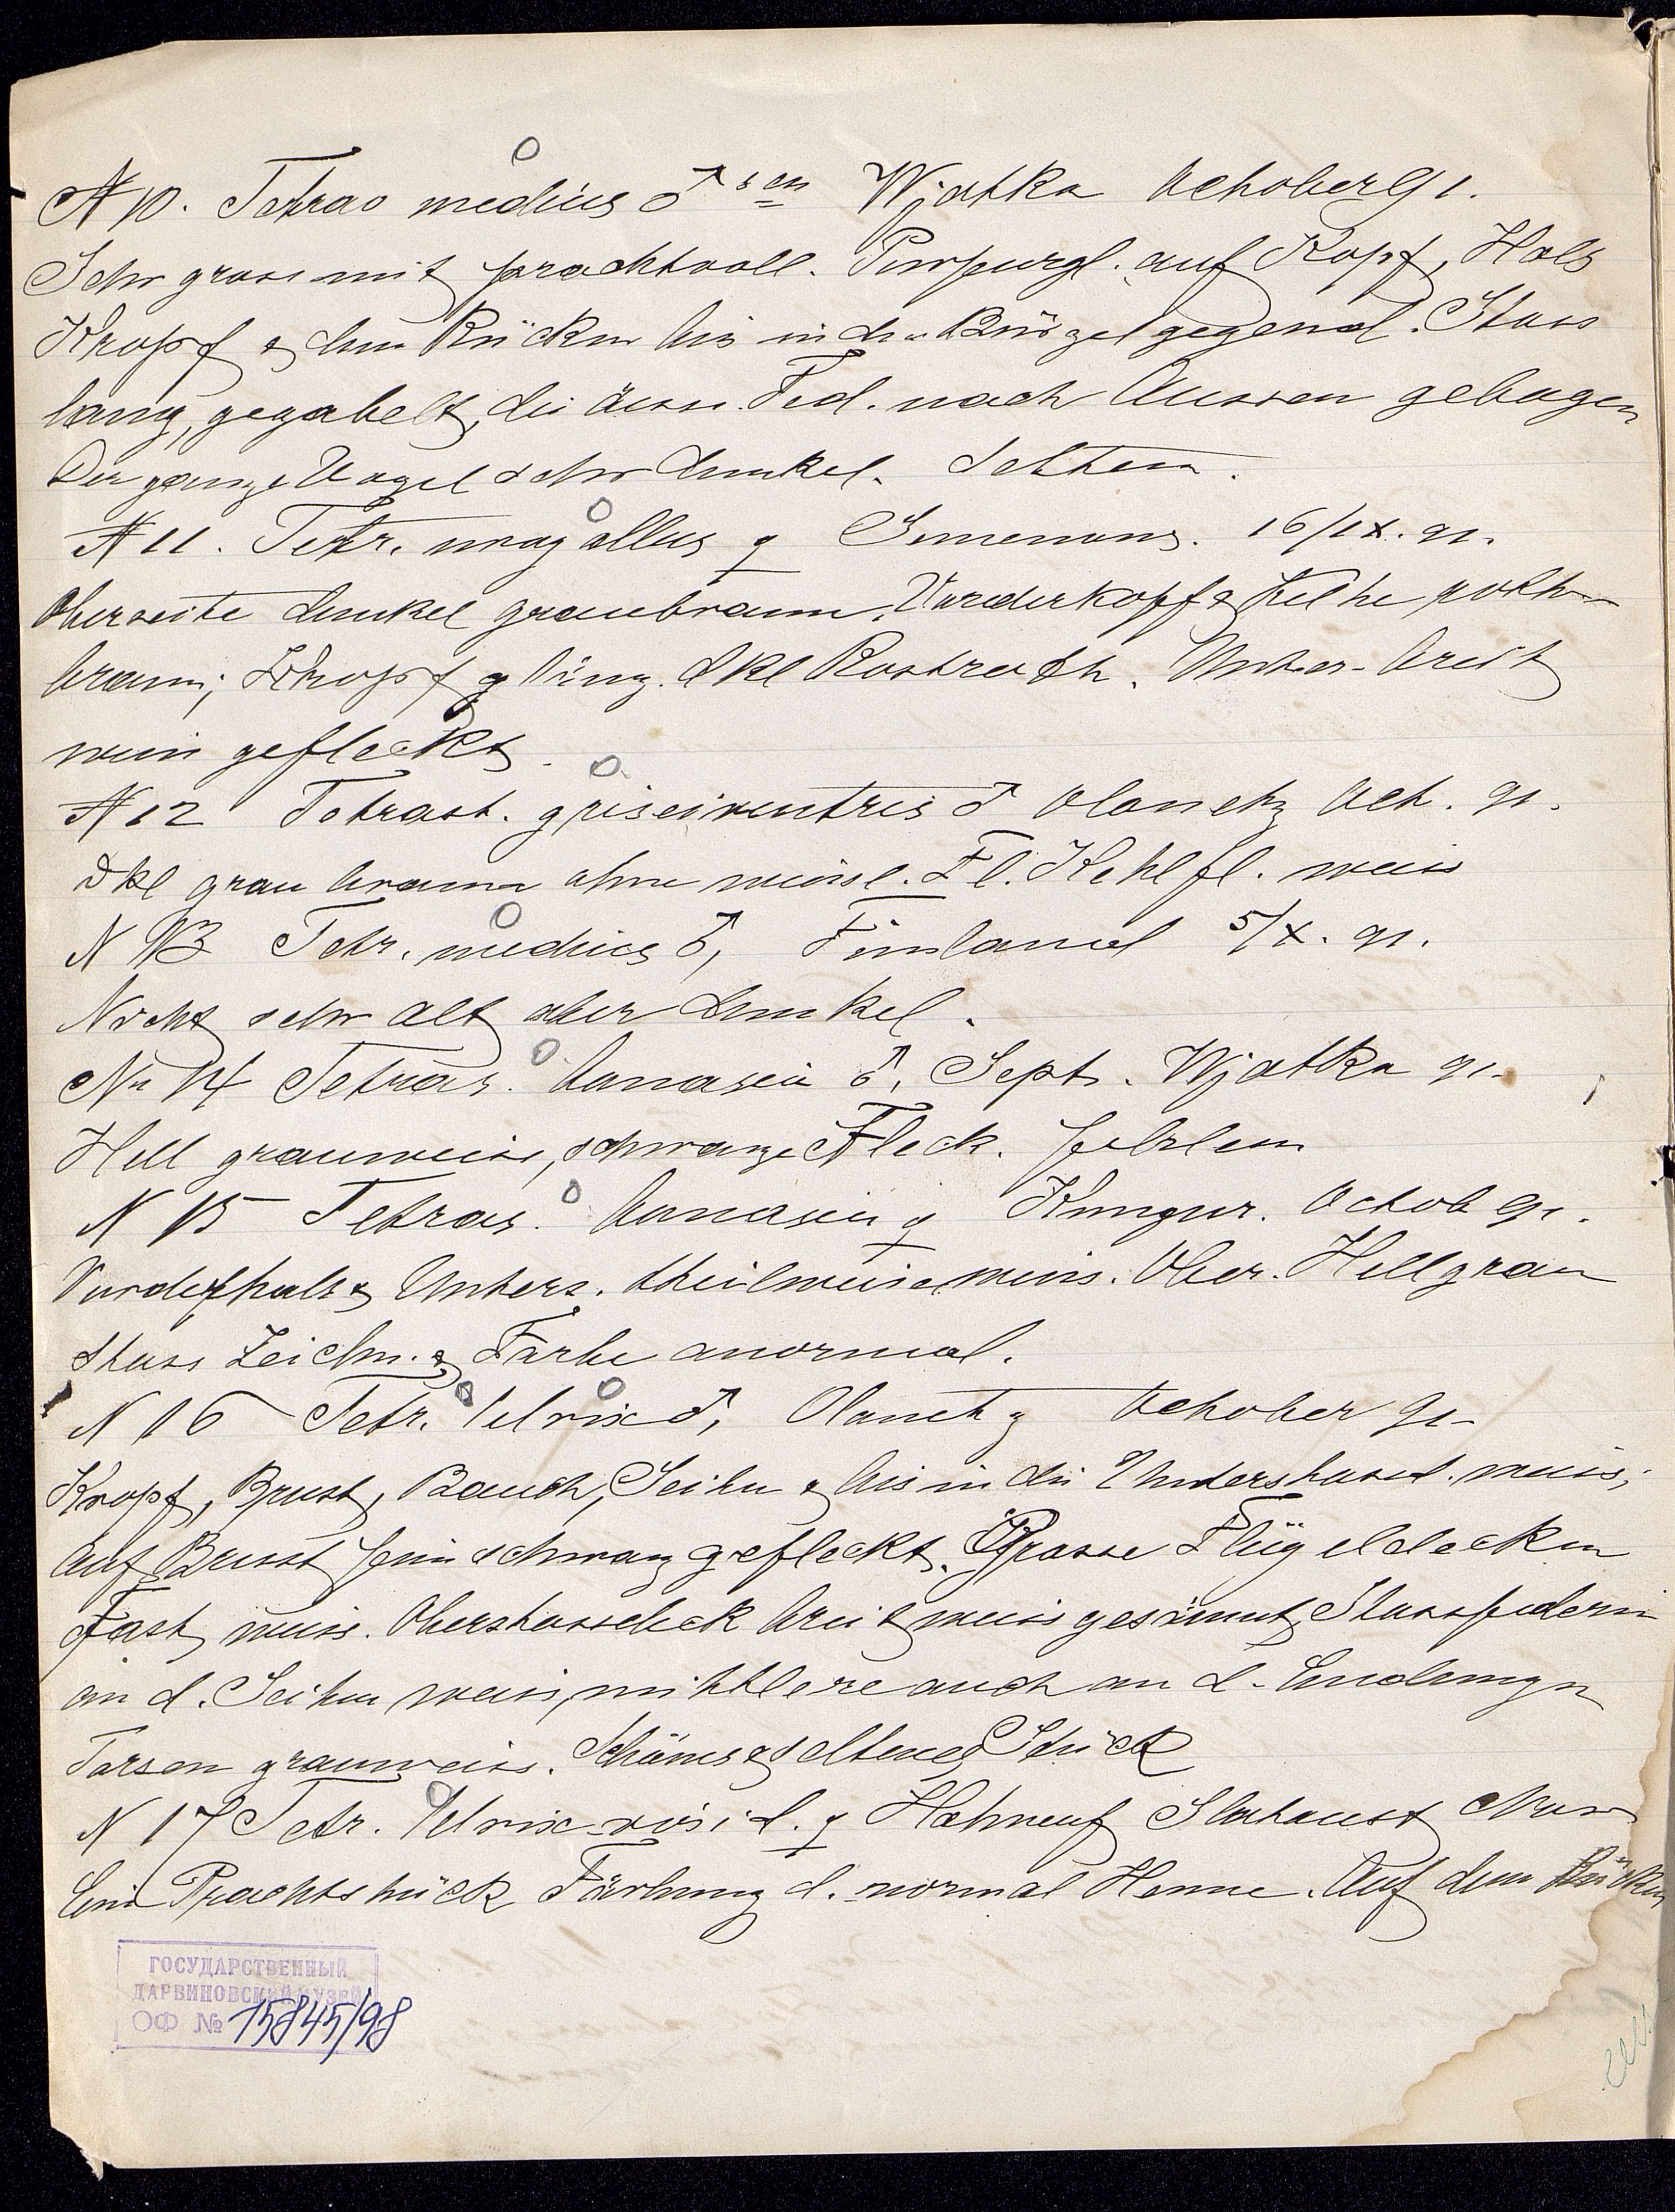 N 10. Tetrao medius ♂ sen Wjatka October 91.
Sehr gross mit prachtvoll. Purpurgl. auf Kopf, Hals
Kropf & dem Rücken bis in die Bürzelgegend. Stoss
lang, gegabelt, die äuss. Fed. nach Aussen gebogen
Der ganze Vogel sehr dunkel. Selten.
N 11. Tetr. urogallus ♀ 16/IX. 91.
Oberseite dunkel graubraun. Vorderkopf & Kehle roth-
braun; Kropf glänz. dkl Rostroth. Unters. breit
weis gefleckt.
N 12 Tetrast. griseiventris ♂ Olonetz Oct. 91.
dkl grau braun ohne weisse. Fl. Kehlfl. weis
N 13 Tetr. medius ♂, Finland 5/X. 91.
Nicht sehr alt aber dunkel.
No 14 Tetras. bonasia ♂, Sept. Wjatka 91.
Hell grauweiss, schwarze Fleck. fehlen
N 15 Tetras. bonasia ♀ Kungur. Octob 91.
Vorderhals & Unters. theilweise weis. Ober. Hellgrau
Stoss Zeichn. & Farbe anormal.
N 16 Tetr. tetrix ♂, Olonetz October 91.
Kropf, Brust, Bauch, Seiten & bis in die Unterstossd. weis;
Auf Brust fein schwarz gefleckt. Grosse Flügeldecken
Fast weiss. Oberstossdeck breit weiss gesäumt, Stossfedern
an d. Seiten weiss, mittlere auch an d. Endungen
Tarsen grauweiss. Schönes & seltenes Stück
N 17 Tetr. tetrix ♀ Hahnenf
Ein Prachtstück Färbung d. normal Henne. Auf dem Rücken
ГОСУДАРСТВЕННЫЙ
ДАРВИНОВСКИЙ МУЗЕЙ
ОФ № 15845/98